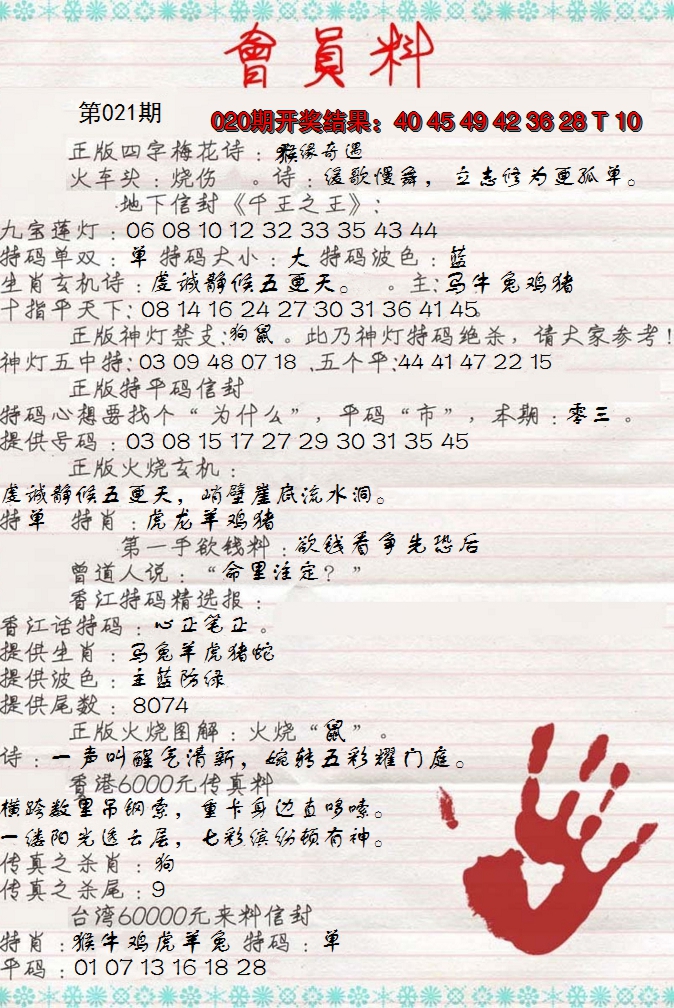 會員料
第021期
020期开奖结果：40 45 49 42 36 28 T 10
正版四字梅花诗：猴缘奇遇
火车头：烧伤 。诗：缓歌慢舞，立志修为更孤单。
地下信封《千王之王》：
九宝莲灯：06 08 10 12 32 33 35 43 44
特码单双：单 特码大小：大 特码波色：蓝
生肖玄机诗：虔诚静候五更天。 。主：马牛兔鸡猪
十指平天下：08 14 16 24 27 30 31 36 41 45。
正版神灯禁支：狗鼠。此乃神灯特码绝杀，请大家参考！
神灯五中特：03 09 48 07 18 .五个平：44 41 47 22 15
正版特平码信封
特码心想要找个“为什么”，平码“市”，本期：零三。
提供号码：03 08 15 17 27 29 30 31 35 45
正版火烧玄机：
虔诚静候五更天，峭壁崖底流水洞。
特单 特肖：虎龙羊鸡猪
第一手欲钱料：欲钱看争先恐后
曾道人说：“命里注定？”
香江特码精选报：
香江话特码：心正笔正。
提供生肖：马兔羊虎猪蛇
提供波色：主蓝防绿
提供尾数：8074
正版火烧图解：火烧“鼠”。
诗：一声叫醒气清新，婉转五彩耀门庭。
香港6000元传真料
横跨数里吊钢索，重卡身边直哆嗦。
一缕阳光透云层，七彩缤纷顿有神。
传真之杀肖：狗
传真之杀尾：9
台湾60000元来料信封
特肖：猴牛鸡虎羊兔 特码：单
平码：01 07 13 16 18 28